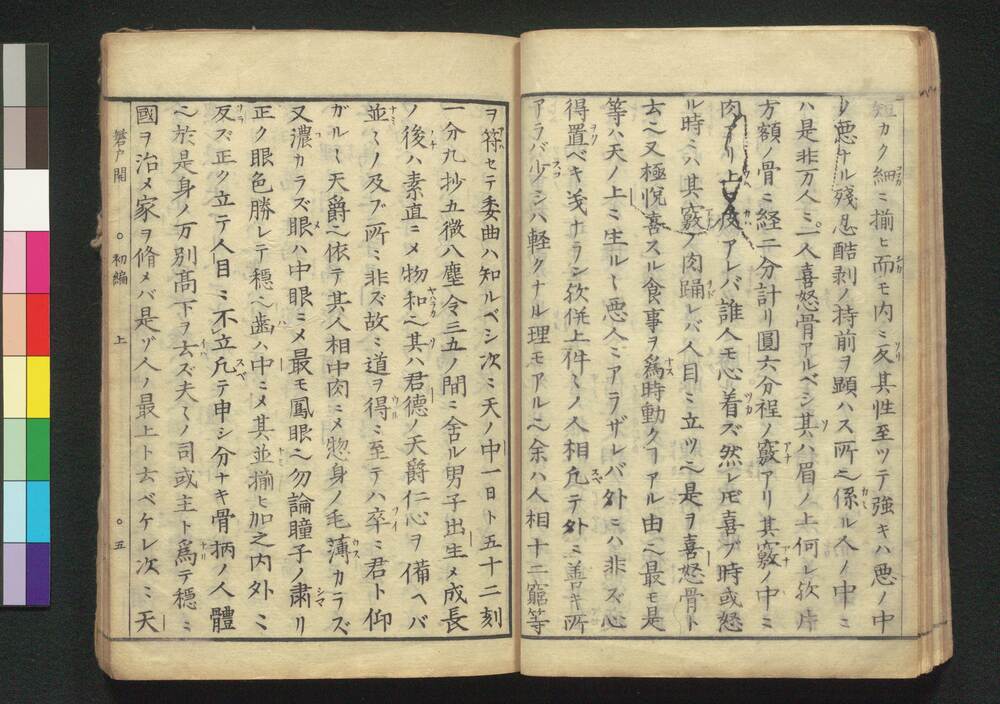 短カク細ニ揃ヒ而モ内ニ反其性至ツテ強キハ悪ノ中
ノ悪ナル残忍酷剥ノ持前ヲ顕ハス所也係ル人ノ中ニ
ハ是非万人ニ一人喜怒骨アルベシ其ハ眉ノ上何レ欤片
方額ノ骨ニ経二分計リ圓六分程ノ竅アリ其竅ノ中ニ
肉アリ上皮アレバ誰人モ心着ズ然レ𪜈喜ブ時或怒
ル時ニハ其竅ノ肉踊レバ人目ニ立ツ也是ヲ喜怒骨ト
云ヘ又極悦喜スル食事ヲ為時動クヿアル由也最モ是
等ハ天ノ上ニ生ル丶悪人ニアラザレバ外ニハ非ズ心
得置ベキ浅ナラン欤併上件ミノ人相凡テ外ニ善キ所
アラバ少シハ軽クナル理モアル也余ハ人相十二窟等
ヲ稼セテ委曲ハ知ルベシ次ニ天ノ中一日ト五十二刻
一分九抄五微八塵令三五ノ間ニ舎ル男子出生メ成長
ノ後ハ素直ニメ物和也其ハ君徳ノ天爵仁心ヲ備ヘバ
並ミノ及ブ所ニ非ズ故ニ道ヲ得ニ至テハ卒ニ君ト仰
ガル丶天爵也依テ其人相中肉ニメ惣身ノ毛薄カラズ
又濃カラズ眼ハ中眼ニメ最モ鳳眼也勿論瞳子ノ粛リ
正ク眼色勝レテ穏也歯ハ中ニメ其並揃ヒ加之内外ニ
反ズ正ク立テ人目ニ不立凡テ申シ分ナキ骨柄ノ人體
也於是身ノ万別高下ヲ云ズ夫ミノ司或主ト為テ穏ニ
國ヲ治メ家ヲ脩メバ是ゾ人ノ最上ト云ベケレ次ニ天
磐戸開 ○初編 上 ○五